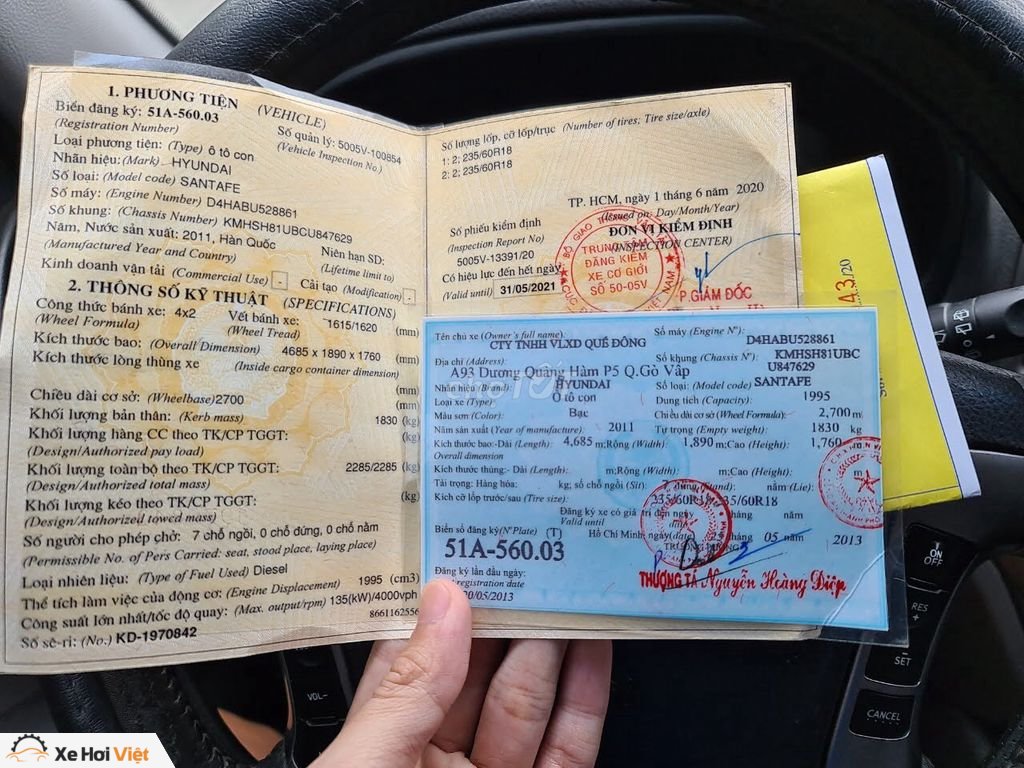 1. PHƯƠNG TIỆN (VEHICLE)
Biển đăng ký: 51A-560.03
(Registration Number)
Số quản lý: 5005V-100854
(Vehicle Inspection No.)
Loại phương tiện: (Type) Ô tô con
Nhãn hiệu: (Mark) HYUNDAI
Số loại: (Model code) SANTAFE
Số máy: (Engine Number) D4HABU528861
Số khung: (Chassis Number) KMHSH81UBCU847629
Năm, Nước sản xuất: 2011, Hàn Quốc
(Manufactured Year and Country)
Niên hạn SD:
(Lifetime limit to)
Kinh doanh vận tải (Commercial Use) - Cải tạo (Modification) -
2. THÔNG SỐ KỸ THUẬT (SPECIFICATIONS)
Công thức bánh xe: 4x2 Vết bánh xe: 1615/1620 (mm)
(Wheel Formula) (Wheel Tread)
Kích thước bao: (Overall Dimension) 4685 x 1890 x 1760 (mm)
Kích thước lòng thùng xe: (Inside cargo container dimension)
(mm)
Chiều dài cơ sở: (Wheelbase) 2700 (mm)
Khối lượng bản thân: (Kerb mass) 1830 (kg)
Khối lượng hàng CC theo TK/CP TGGT: (kg)
(Design/Authorized pay load)
Khối lượng toàn bộ theo TK/CP TGGT: 2285/2285 (kg)
(Design/Authorized total mass)
Khối lượng kéo theo TK/CP TGGT: (kg)
(Design/Authorized towed mass)
Số người cho phép chở: 7 chỗ ngồi, 0 chỗ đứng, 0 chỗ nằm
(Permissible No. of Pers Carried: seat, stood place, laying place)
Loại nhiên liệu: (Type of Fuel Used) Diesel
Thể tích làm việc của động cơ: (Engine Displacement) 1995 (cm3)
Công suất lớn nhất/tốc độ quay: (Max. output/rpm) 135(kW)/4000vph
Số sê-ri: (No.) KD-1970842
8661162556
Số lượng lốp, cỡ lốp/trục (Number of tires; Tire size/axle)
1: 2; 235/60R18
2: 2; 235/60R18
TP. HCM, ngày 1 tháng 6 năm 2020
(Issued on: Day/Month/Year)
Số phiếu kiểm định
(Inspection Report No)
5005V-13391/20
ĐƠN VỊ KIỂM ĐỊNH
(INSPECTION CENTER)
Có hiệu lực đến hết ngày
(Valid until) 31/05/2021
BỘ GIAO THÔNG VẬN TẢI
TRUNG TÂM
ĐĂNG KIỂM
XE CƠ GIỚI
SỐ 50-05V
P.GIÁM ĐỐC
Tên chủ xe (Owner's full name):
CTY TNHH VLXD QUẾ ĐÔNG
Số máy (Engine Nº): D4HABU528861
Địa chỉ (Address):
A93 Dương Quảng Hàm P5 Q.Gò Vấp
Số khung (Chassis Nº): KMHSH81UBC
U847629
Nhãn hiệu (Brand): HYUNDAI
Số loại: (Model code) SANTAFE
Loại xe (Type): Ô tô con
Dung tích (Capacity): 1995
Màu sơn (Color): Bạc
Chiều dài cơ sở (Wheel Formula): 2,700 m
Năm sản xuất (Year of manufacture): 2011
Tự trọng (Empty weight): 1830 kg
Kích thước bao:-Dài (Length): 4,685 m;Rộng (Width): 1,890 m;Cao (Height): 1,760
Overall dimension
Kích thước thùng:- Dài (Length): m;Rộng (Width): m;Cao (Height): m
Tải trọng: Hàng hóa: kg; số chỗ ngồi (Sit): 7 đứng (Stand): nằm (Lie):
Kích cỡ lốp trước/sau (Tire size): 235/60R18 /235/60R18
Đăng ký xe có giá trị đến ngày tháng năm
Valid until
Biển số đăng ký(NºPlate) (T)
51A-560.03
Hồ Chí Minh ngày(date) 05 năm 2013
Đăng ký lần đầu ngày:
registration date
30/05/2013
THƯỢNG TÁ Nguyễn Hoàng Điệp
ON
OFF
RES
+
SET
CANCEL
VOL-
Xe Hơi Việt